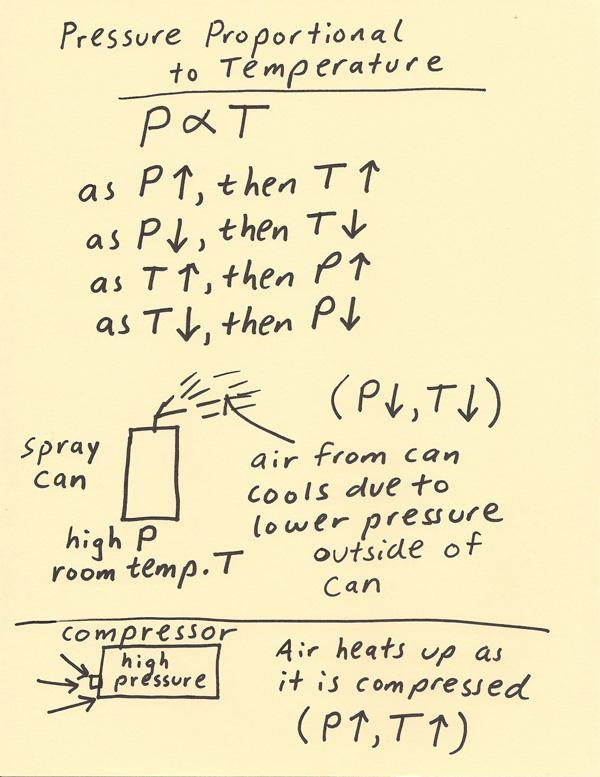 Pressure Proportional
to Temperature
P ∝ T
as P↑, then T↑
as P↓, then T↓
as T↑, then P↑
as T↓, then P↓
(P↓, T↓)
spray
can
high P
room temp. T
air from can
cools due to
lower pressure
outside of
can
compressor
high
pressure
Air heats up as
it is compressed
(P↑, T↑)